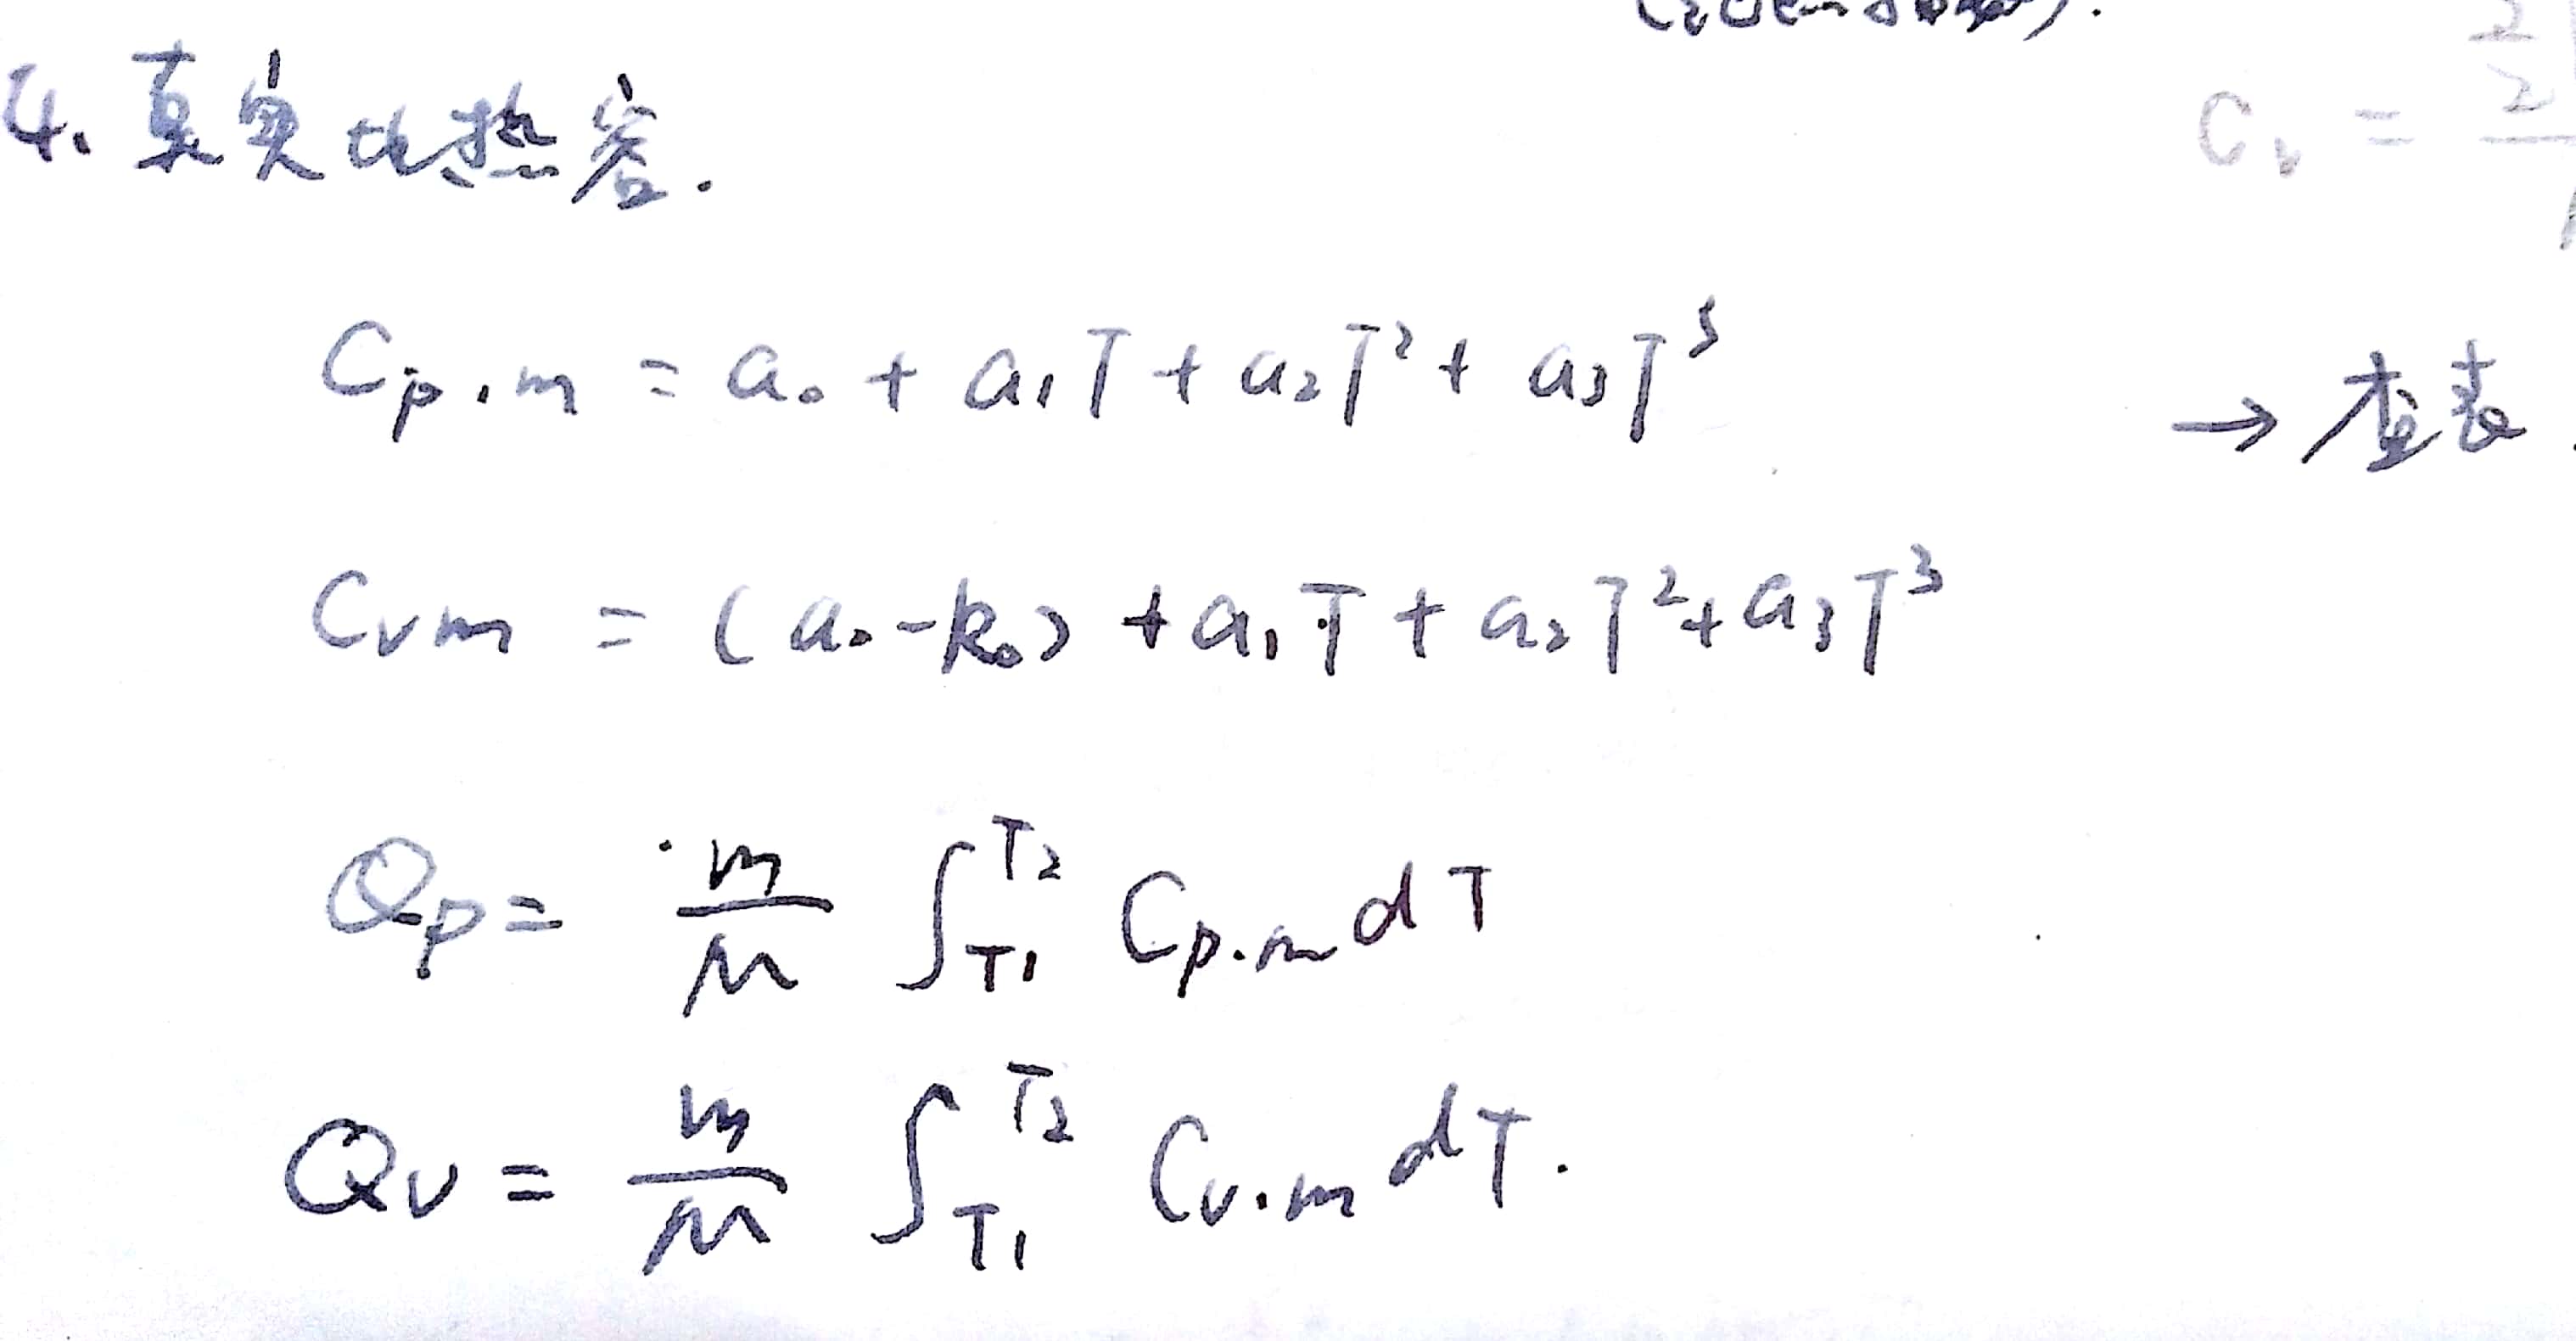 4. 真实比热容.
Cp.m = a₀ + a₁T + a₂T² + a₃T³ → 查表.
Cvm = (a₀-R₀) + a₁T + a₂T² + a₃T³
Qp = m/M ∫_{T1}^{T2} Cp.m dT
Qv = m/M ∫_{T1}^{T2} Cv.m dT.